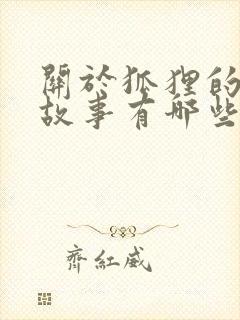 關於狐狸的
故事有哪些
齊紅威